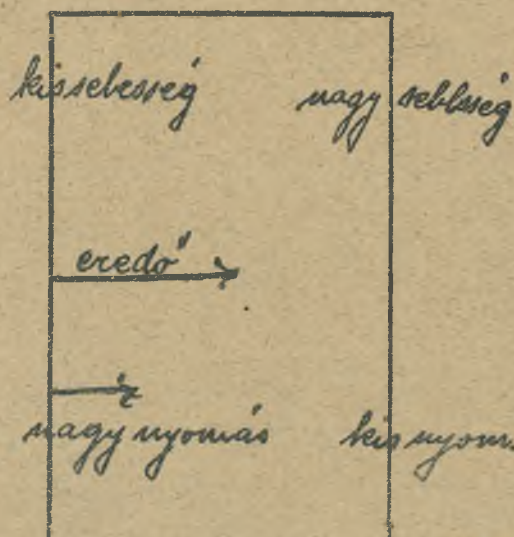 kis sebesség nagy sebesség
eredő
nagy nyomás kis nyom